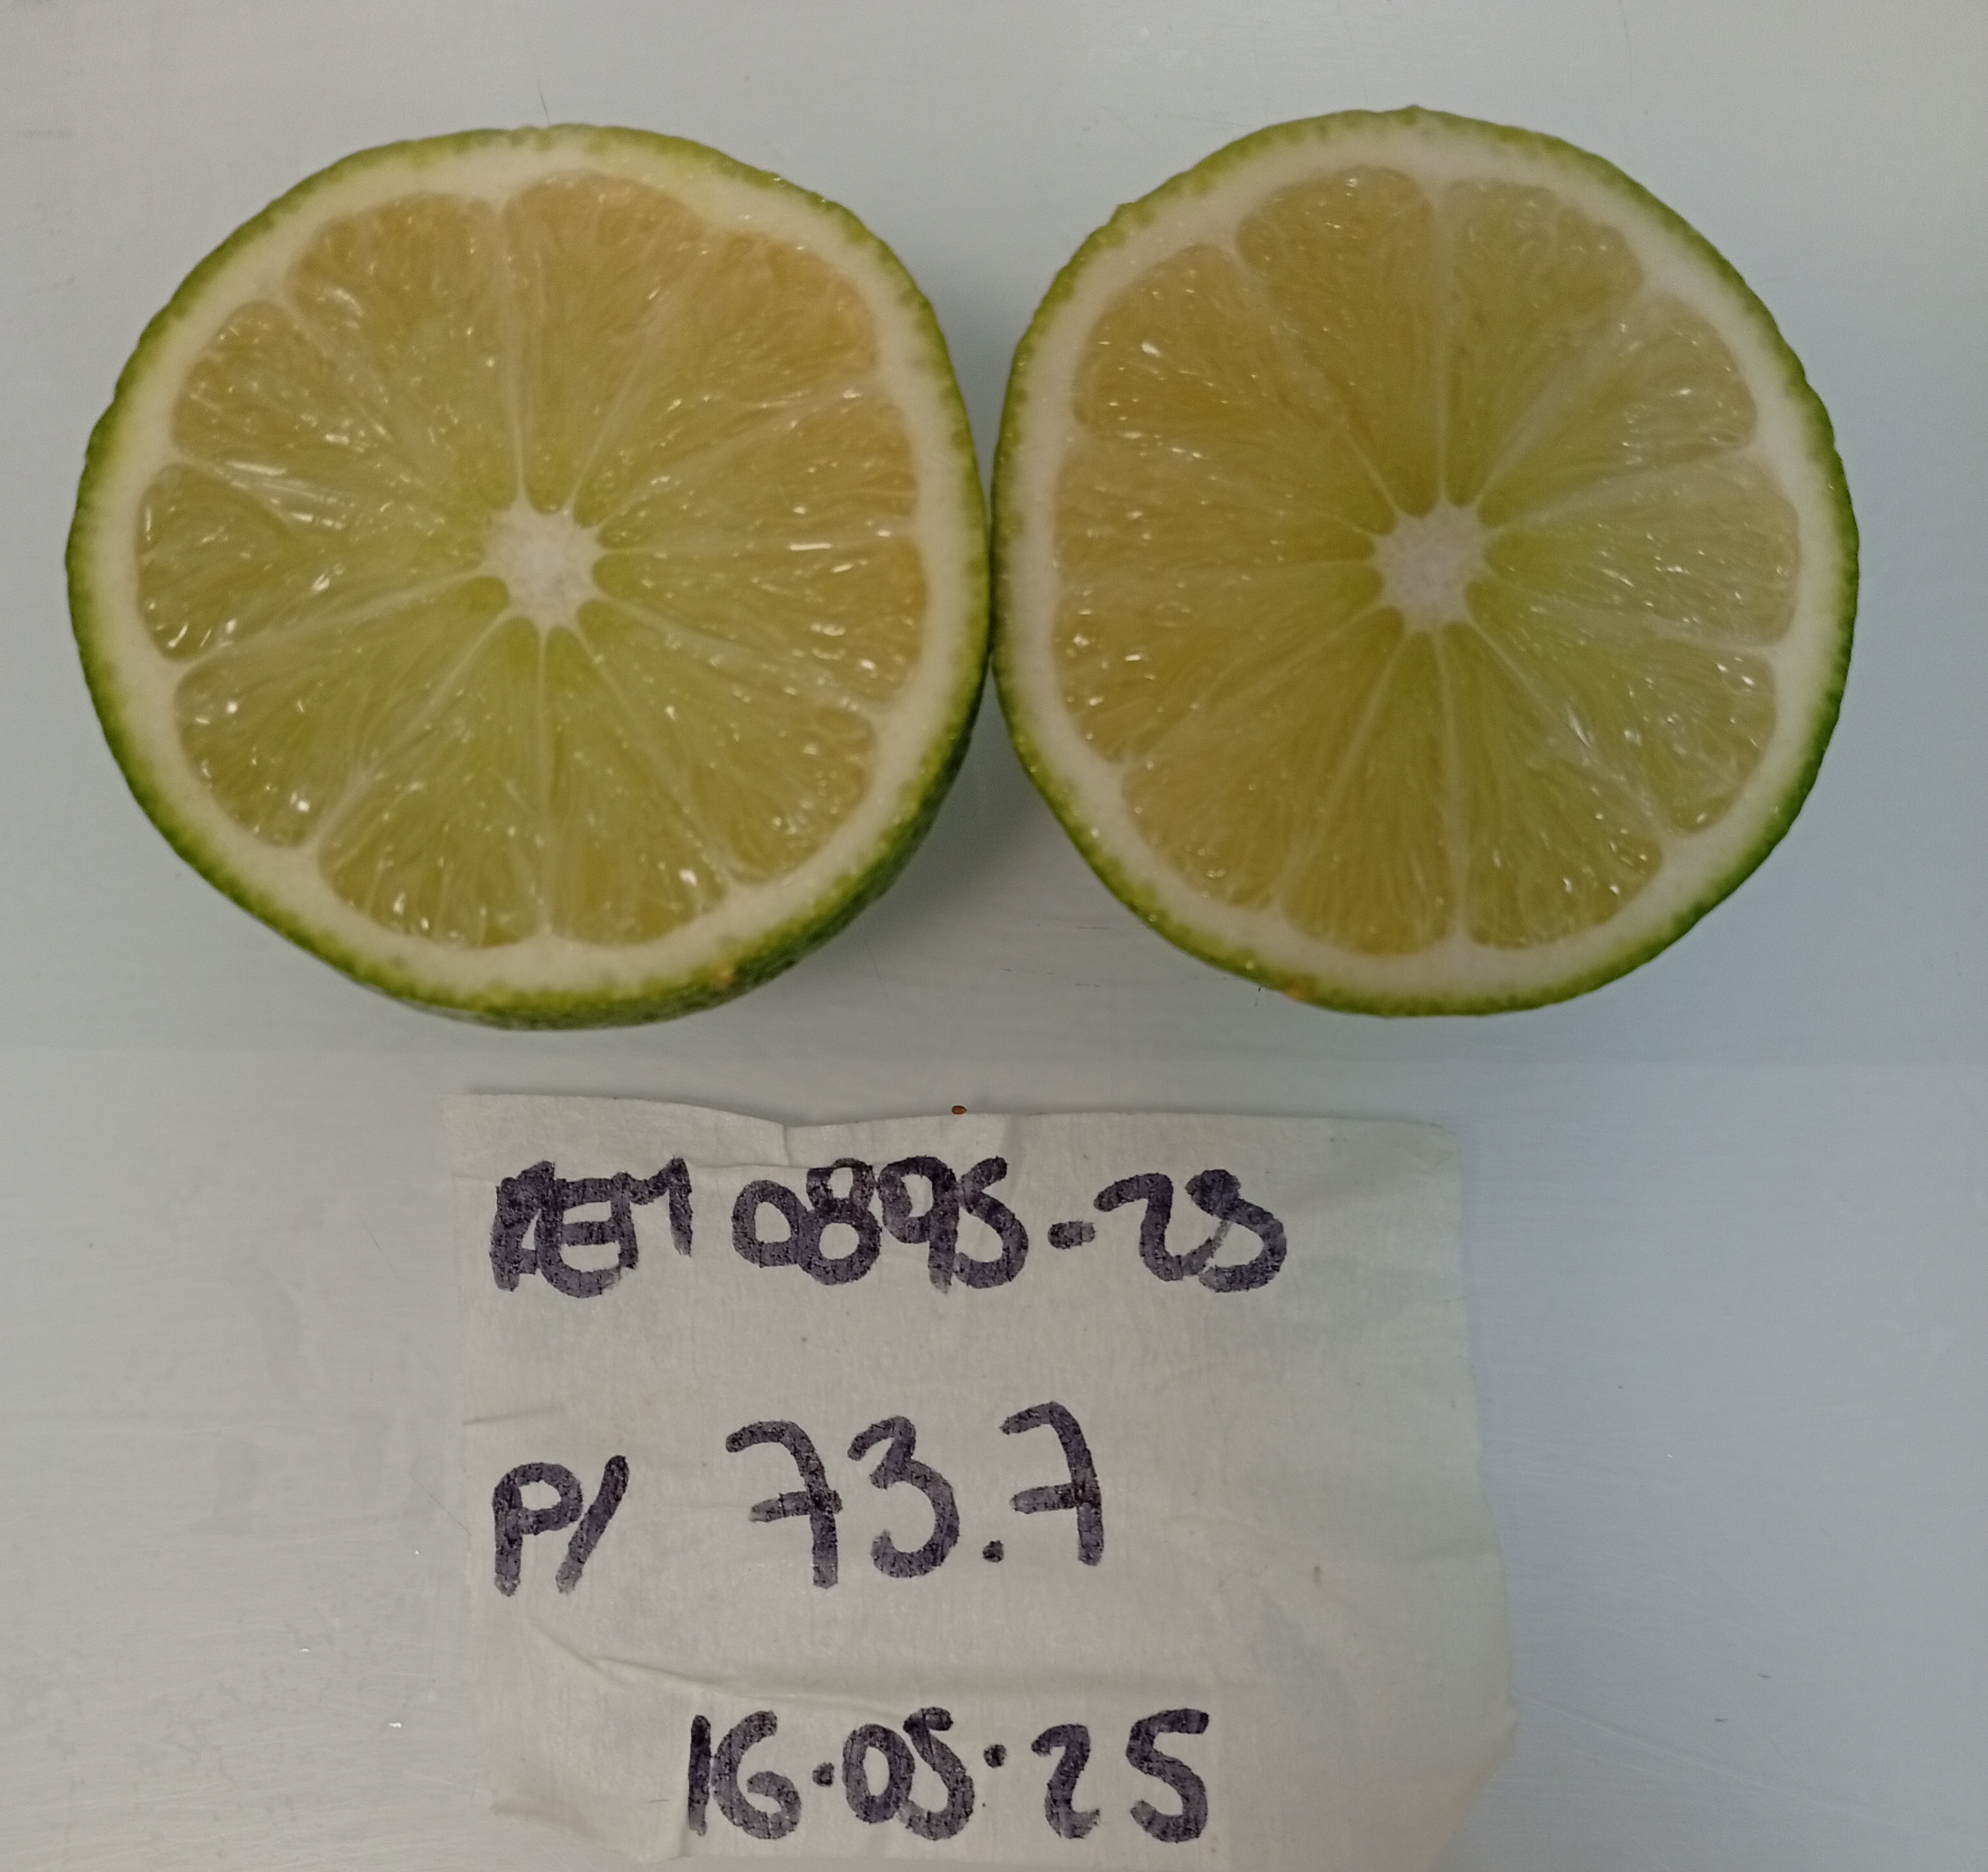 REM 0895-25
P/ 73.7
16.05.25